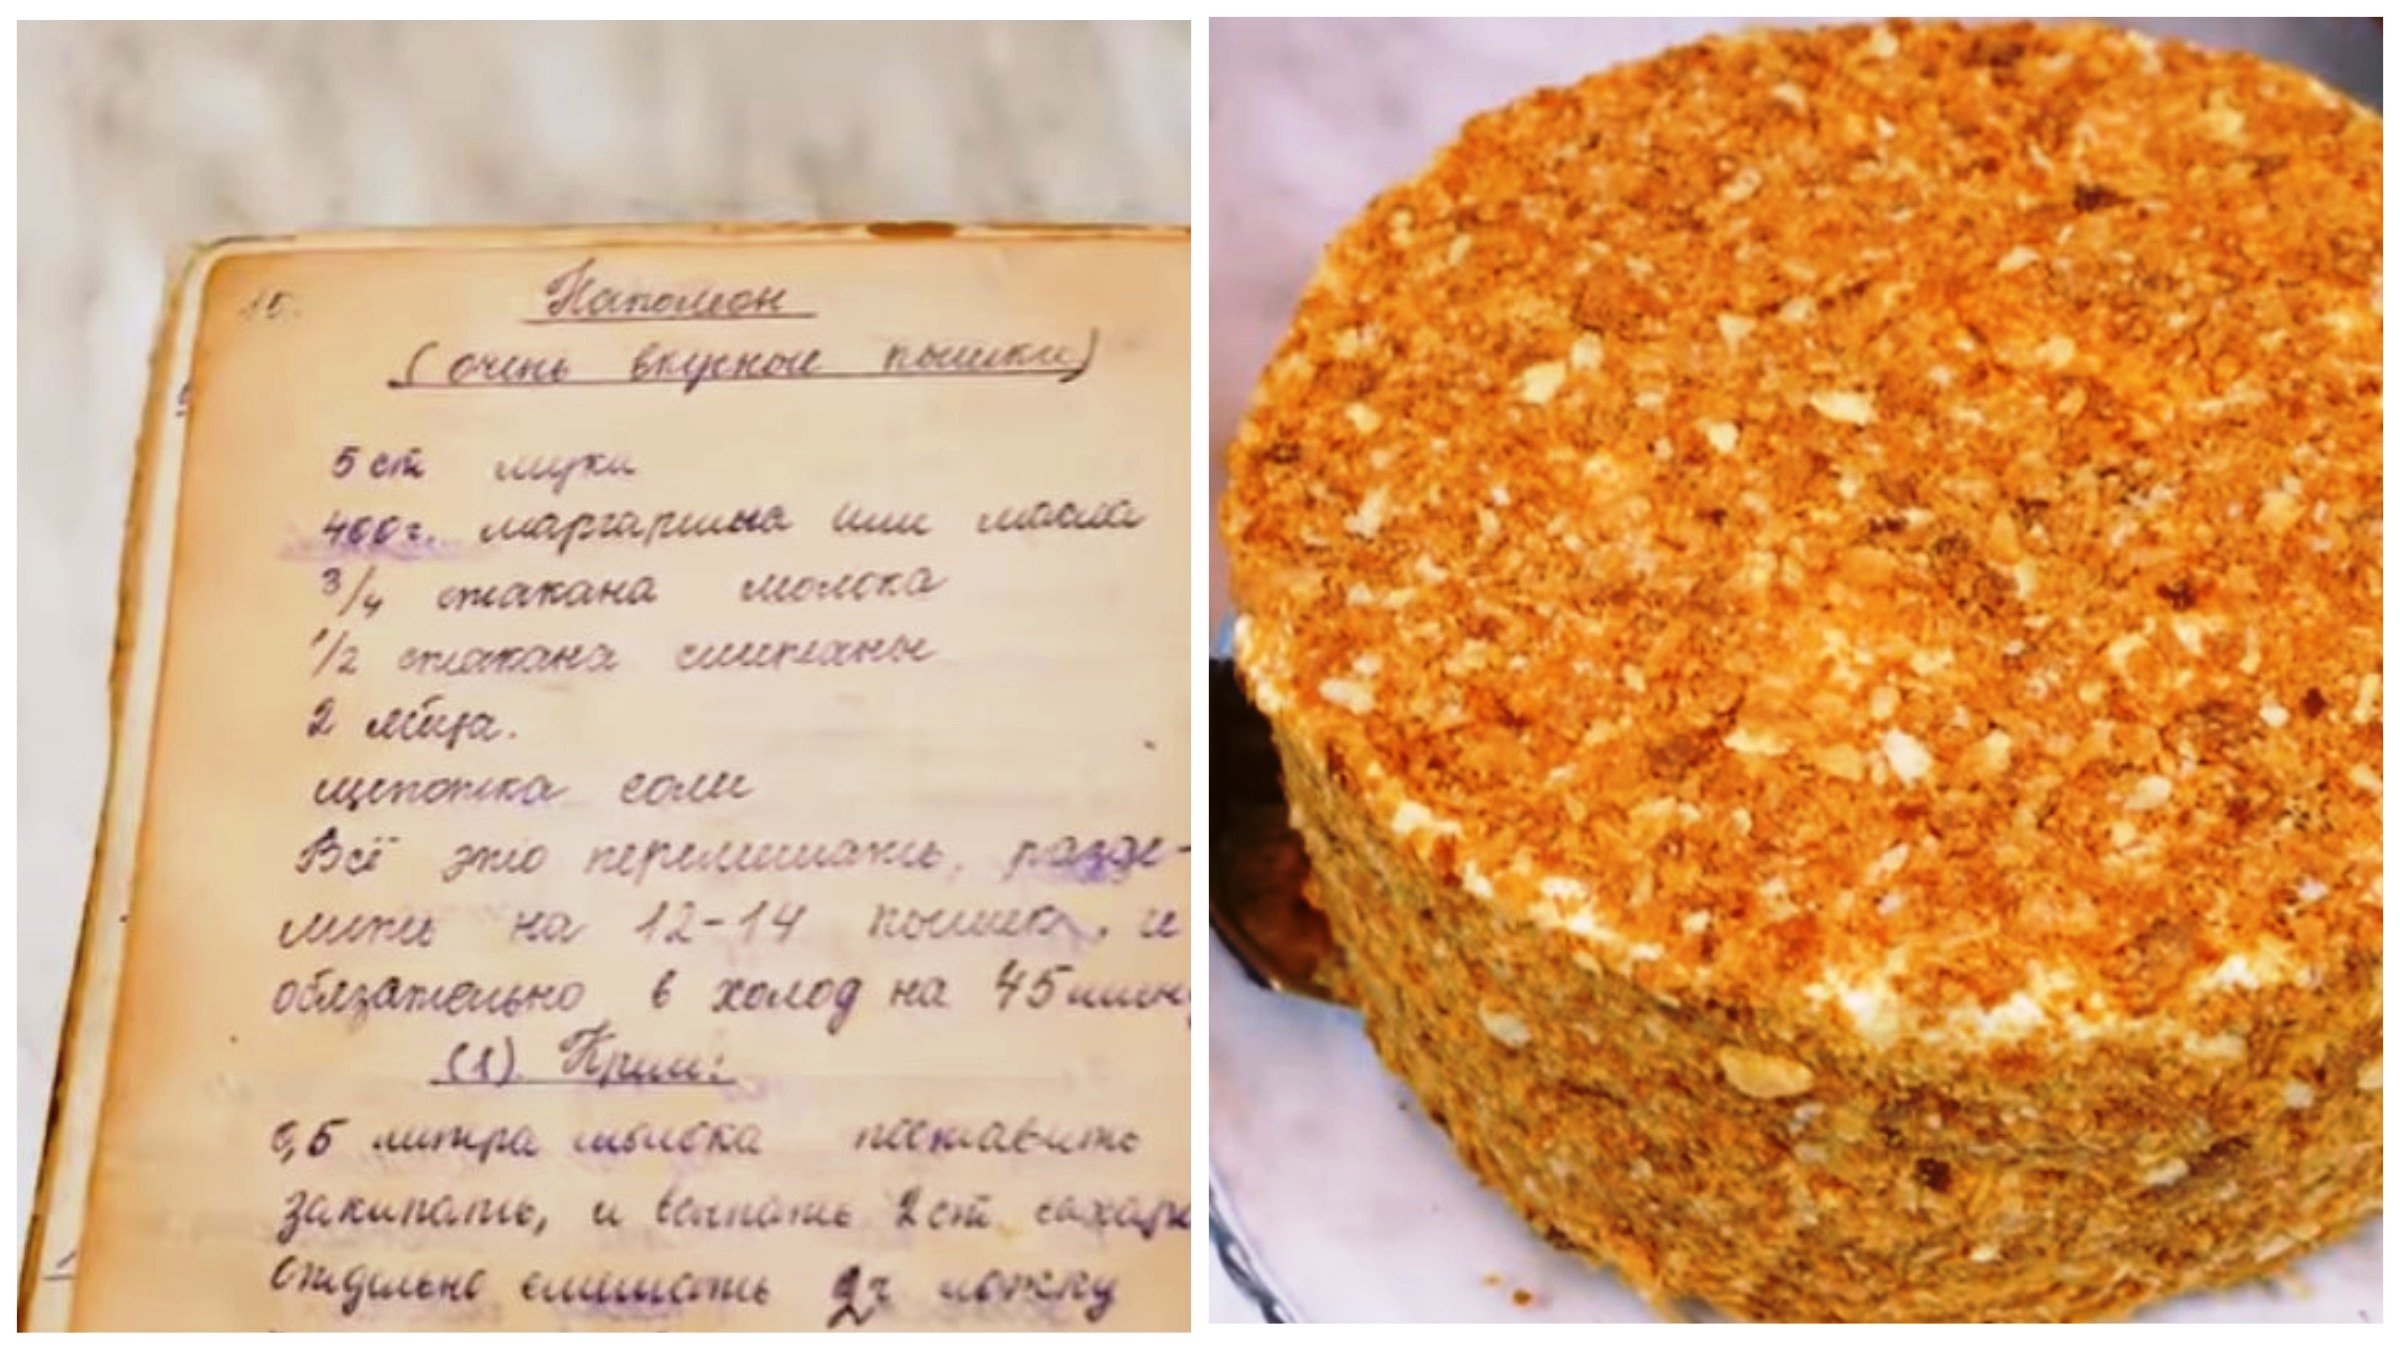 15.
Наполеон
(очень вкусные пышки)
5 ст муки
400 г. маргарина или масла
3/4 стакана молока
1/2 стакана сметаны
2 яйца.
щепотка соли
Всё это перемешать, разде-
лить на 12-14 пышек, и
обязательно в холод на 45 мину
(1). Крем:
0,5 литра молока поставить
закипать, и всыпать 2 ст. сахара
отдельно смешать 2 ложку